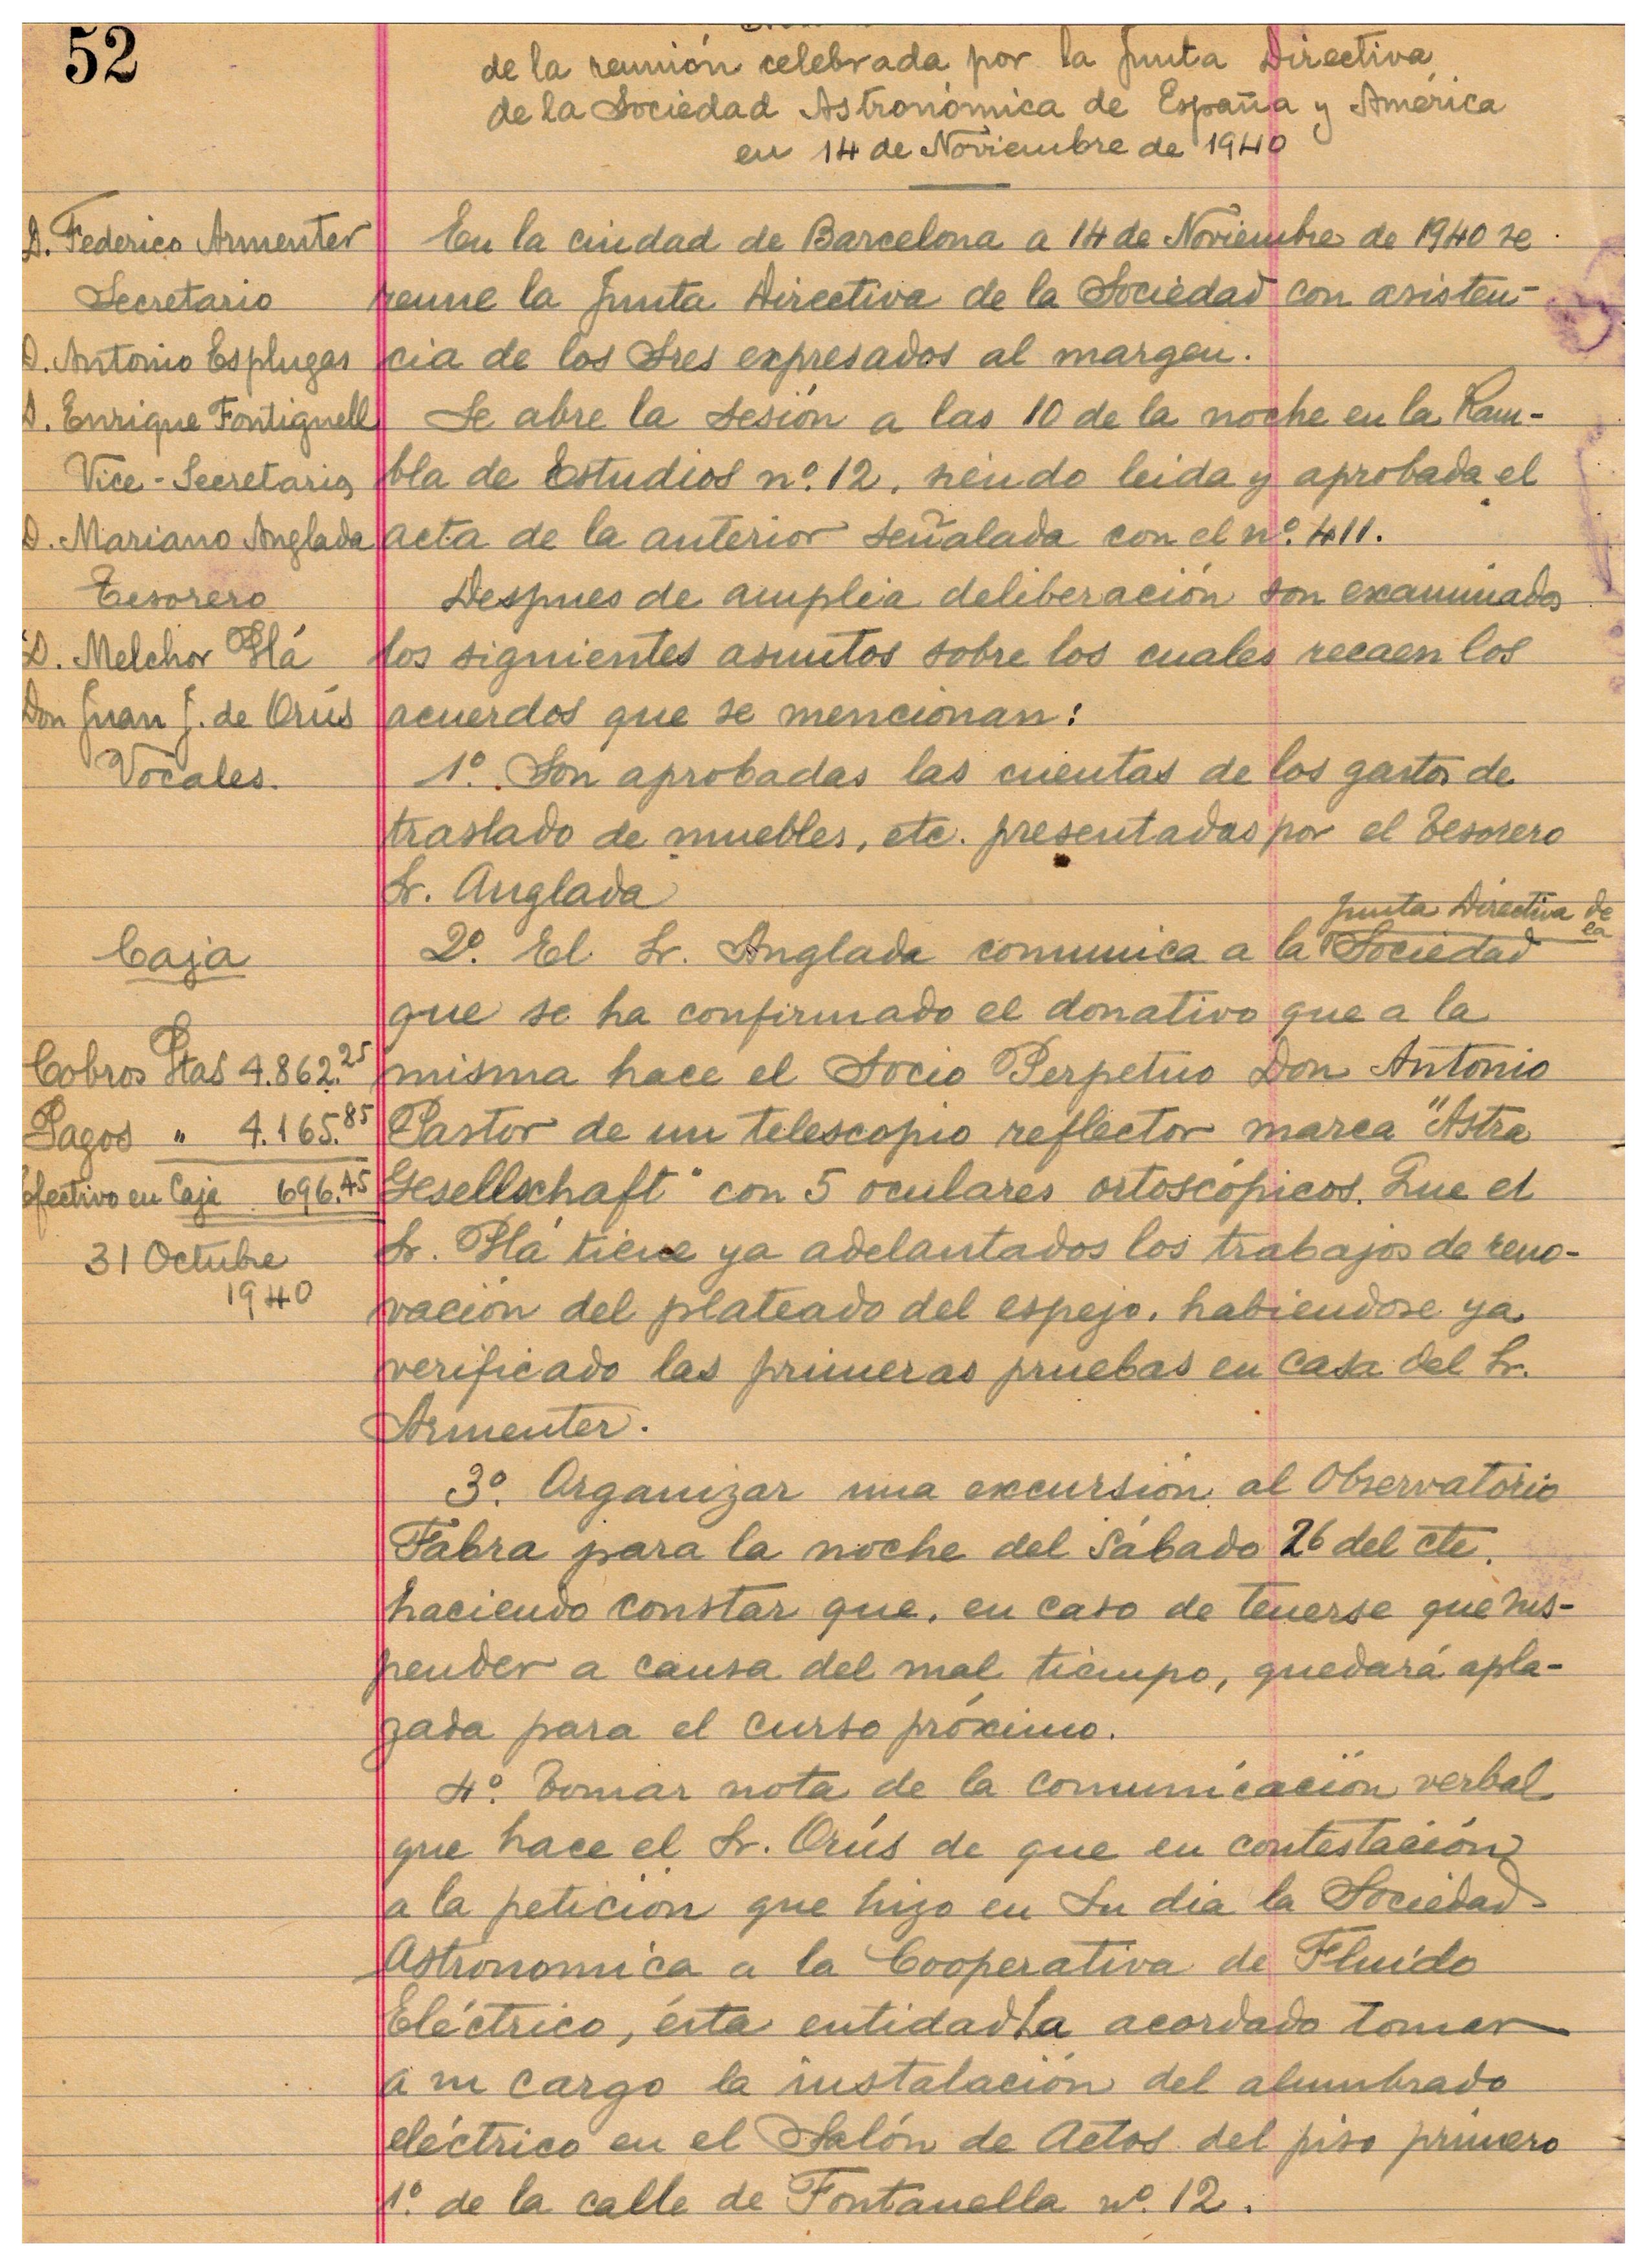 52
de la reunión celebrada por la Junta Directiva
de la Sociedad Astronómica de España y América
en 14 de Noviembre de 1940
D. Federico Armenter
Secretario
D. Antonio Esplugas
D. Enrique Fontignell
Vice-Secretario
D. Mariano Anglada
Tesorero
D. Melchor Plá
Don Juan J. de Orús
Vocales.
Caja
Cobros Ptas 4.862.25
Pagos " 4.165.85
Efectivo en Caja 696.45
31 Octubre
1940
En la ciudad de Barcelona a 14 de Noviembre de 1940 se
reune la Junta Directiva de la Sociedad con asisten-
cia de los Sres expresados al margen.
Se abre la sesión a las 10 de la noche en la Ram-
bla de Estudios nº. 12, siendo leida y aprobada el
acta de la anterior señalada con el nº. 411.
Despues de amplia deliberación son examinados
los siguientes asuntos sobre los cuales recaen los
acuerdos que se mencionan:
1º. Son aprobadas las cuentas de los gastos de
traslado de muebles, etc. presentadas por el Tesorero
Sr. Anglada
Junta Directiva de
la
2º. El Sr. Anglada comunica a la Sociedad
que se ha confirmado el donativo que a la
misma hace el Socio Perpetuo Don Antonio
Pastor de un telescopio reflector marca "Astra
Gesellschaft" con 5 oculares ortoscópicos. Que el
Sr. Plá tiene ya adelantados los trabajos de reno-
vación del plateado del espejo, habiendose ya
verificado las primeras pruebas en casa del Sr.
Armenter.
3º. Organizar una excursión al Observatorio
Fabra para la noche del sábado 26 del cte.
haciendo constar que, en caso de tenerse que sus-
pender a causa del mal tiempo, quedará apla-
zada para el curso próximo.
4º. Tomar nota de la comunicación verbal
que hace el Sr. Orús de que en contestación
a la petición que hizo en su dia la Sociedad
Astronomica a la Cooperativa de Fluído
Eléctrico, ésta entidad ha acordado tomar
a su cargo la instalación del alumbrado
eléctrico en el Salón de Actos del piso primero
1º. de la calle de Fontanella nº. 12.